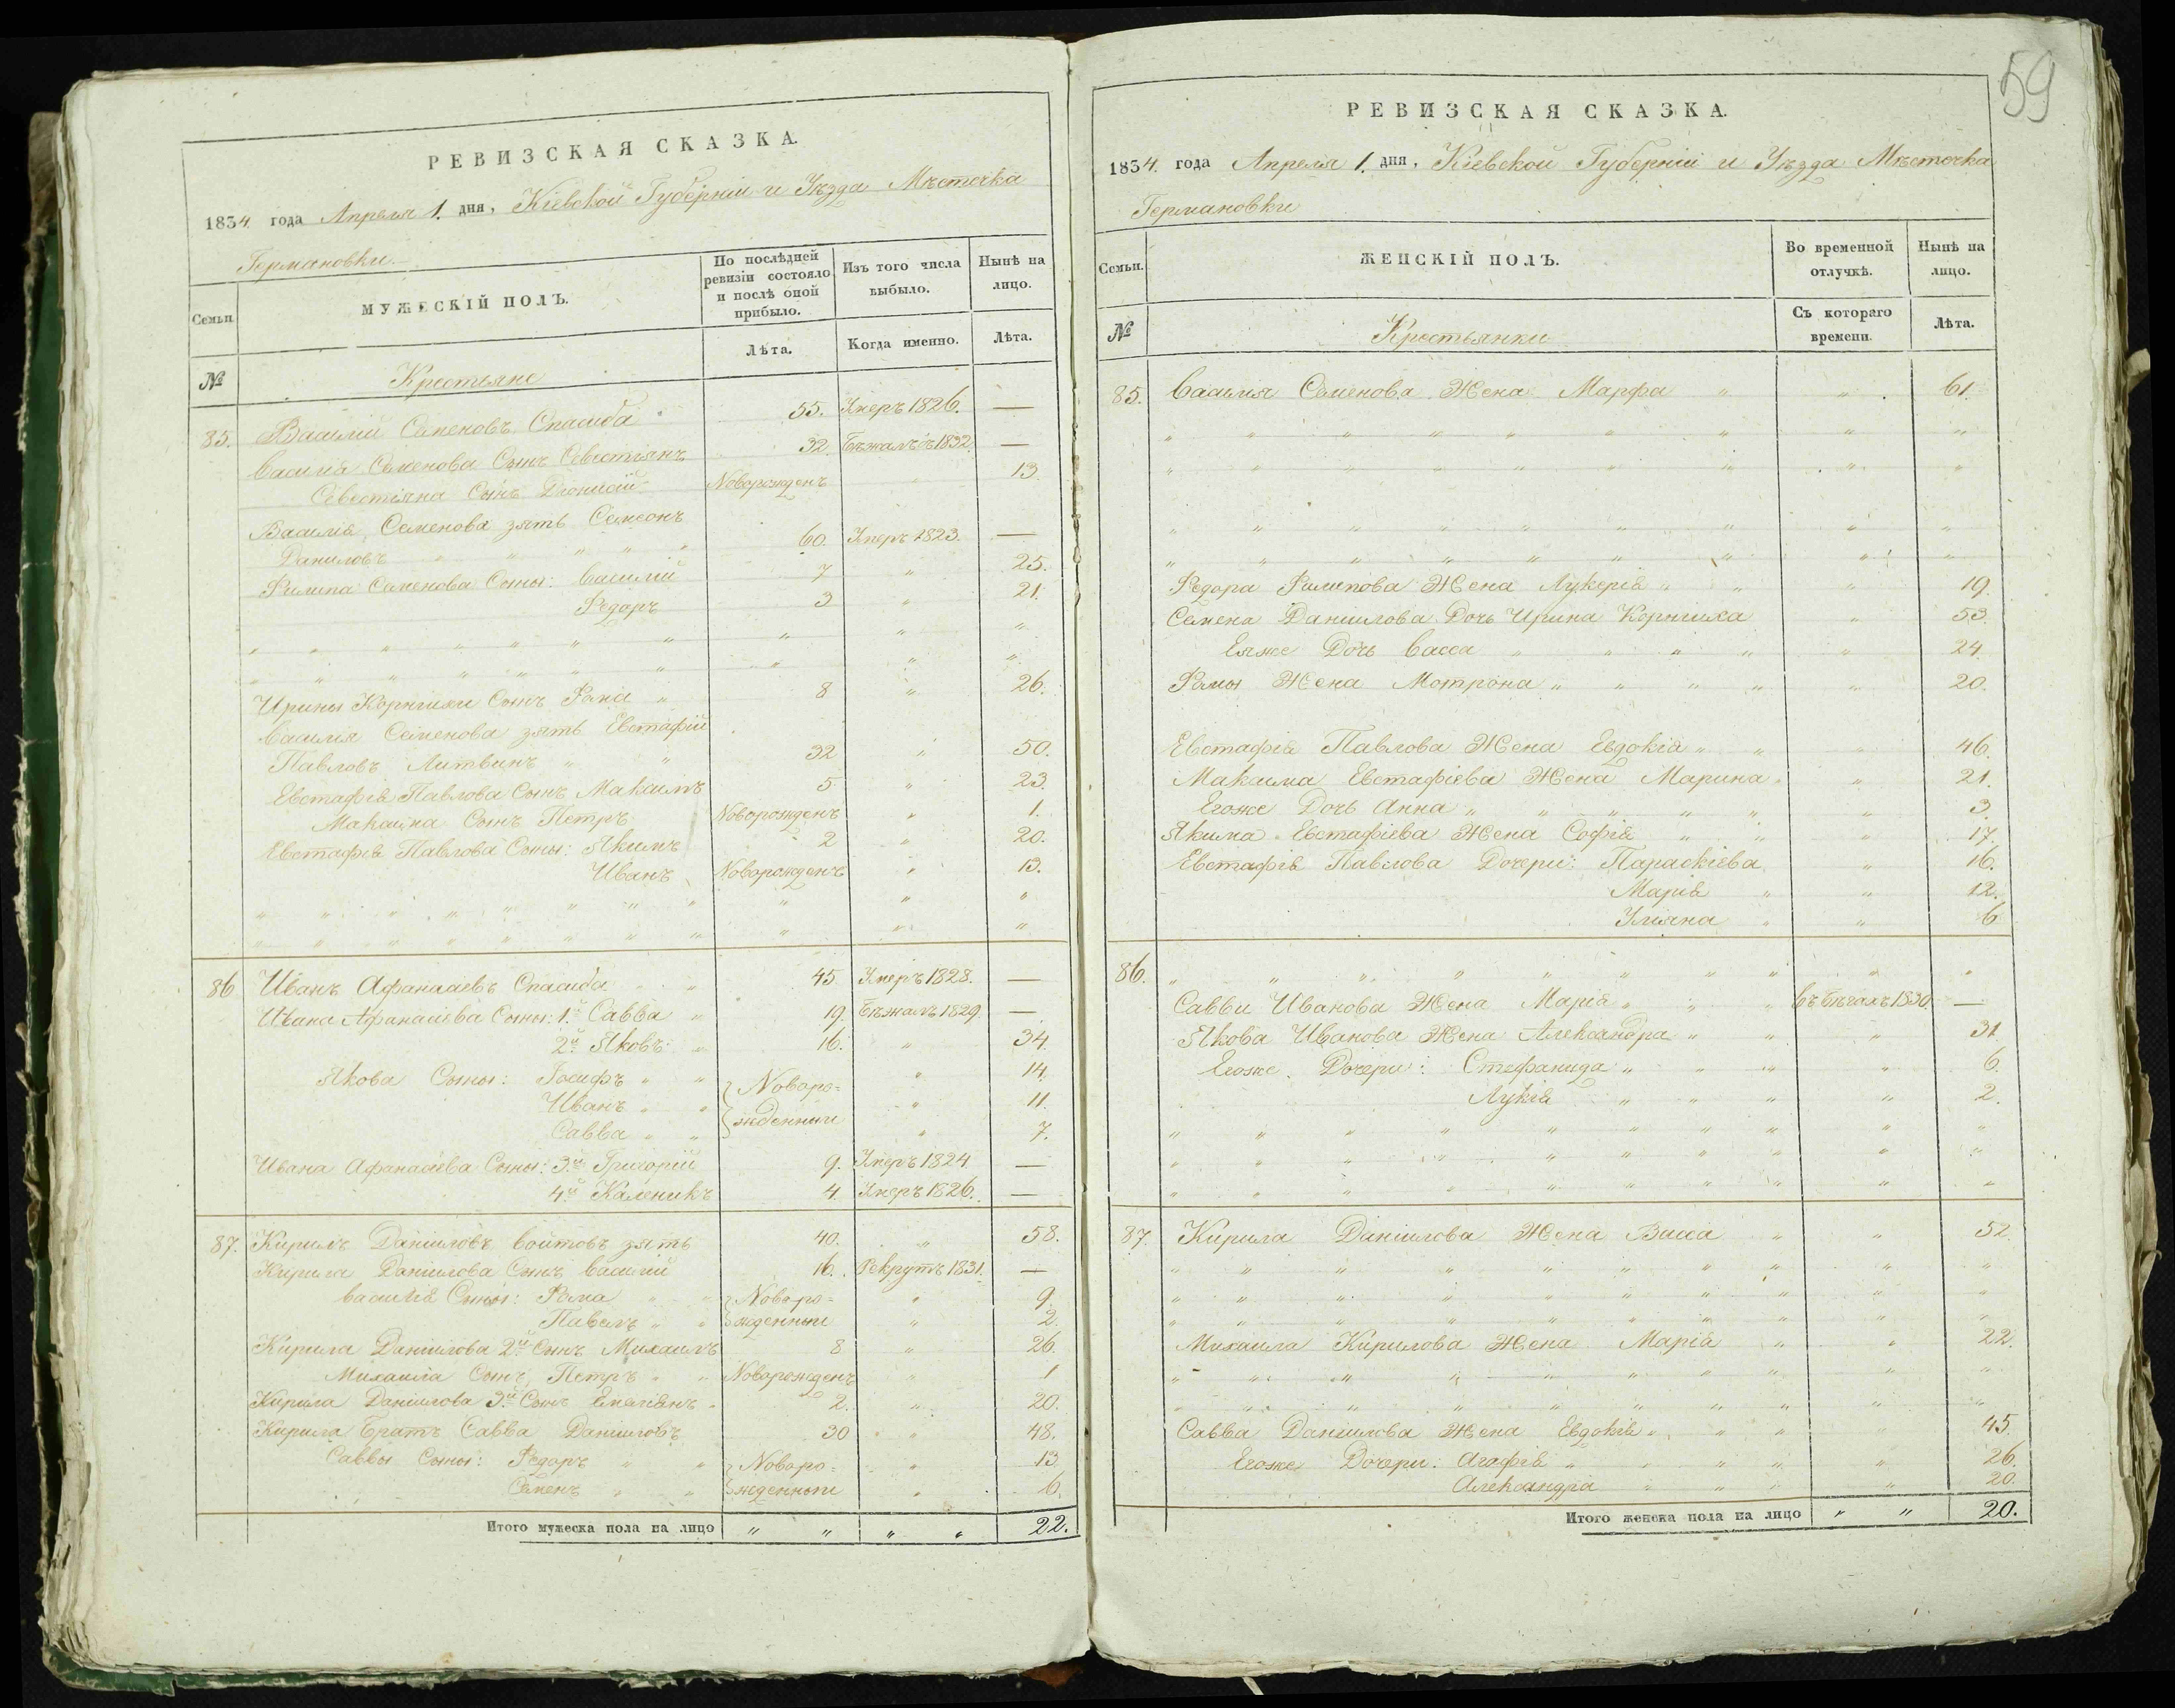 РЕВИЗСКАЯ СКАЗКА.
1834 года Апреля 1. дня, Кіевской Губерніи и Уѣзда Мѣстечка
Германовки.
Семьи.
МУЖЕСКІЙ ПОЛЪ.
По послѣдней ревизіи состояло и послѣ оной прибыло.
Изъ того числа выбыло.
Нынѣ на лицо.
№
Крестьяне
Лѣта.
Когда именно.
Лѣта.
85. Василій Семеновъ Спасиба 55. Умеръ 1826. —
Василія Семенова Сынъ Севестіянъ 32. Бѣжалъ въ 1832. —
Севестіяна Сынъ Діонисій Новорожденъ " 13.
Василія Семенова зять Семсонъ
Даниловъ " " " " " 60. Умеръ 1823. —
Филипа Семенова Сыны: Василій 7 " 25.
Федоръ 3 " 21.
" " " " " " " " " "
" " " " " " " " " "
Ирины Корнѣихи Сынъ Фома " 8 " 26.
Василія Семенова зять Евстафій
Павловъ Литвинъ " " 32 " 50.
Евстафія Павлова Сынъ Максимъ 5 " 23.
Максима Сынъ Петръ Новорожденъ " 1.
Евстафія Павлова Сыны: Якимъ 2 " 20.
Иванъ Новорожденъ " 13.
" " " " " " " " " " "
" " " " " " " " " " "
86 Иванъ Афанасіевъ Спасиба " " 45 Умеръ 1828. —
Ивана Афанасіева Сыны: 1й Савва " 19. Бѣжалъ 1829. —
2й Яковъ " 16. " 34.
Якова Сыны: Іосифъ " " Новоро= " 14.
Иванъ " " жденныи " 11.
Савва " " " 7.
Ивана Афанасіева Сыны: 3й Григорій 9. Умеръ 1824 —
4й Каленикъ 4. Умеръ 1826. —
87. Кирилъ Даніиловъ Войтовъ зять 40. " 58.
Кирила Даніилова Сынъ Василій 16. Рекрутъ 1831. —
Василія Сыны: Фома " " Новоро= " 9.
Павелъ " " жденныи " 2.
Кирила Даніилова 2й Сынъ Михаилъ 8 " 26.
Михаила Сынъ Петръ " " Новорожденъ " 1
Кирила Даніилова 3й Сынъ Емеліянъ " 2. " 20.
Кирила Братъ Савва Даніиловъ 30 " 48.
Саввы Сыны: Федоръ " " Новоро= " 13
Семенъ " " жденныи " 6.
Итого мужеска пола на лицо " " " " 22.
59
РЕВИЗСКАЯ СКАЗКА.
1834. года Апреля 1. дня, Кіевской Губерніи и Уѣзда Мѣстечка
Германовки
Семьи.
ЖЕНСКІЙ ПОЛЪ.
Во временной отлучкѣ.
Нынѣ на лицо.
№
Крестьянки
Съ котораго времени.
Лѣта.
85. Василія Семенова Жена Марфа " " 61.
" " " " " " " " "
" " " " " " " " "
" " " " " " " " "
" " " " " " " " "
Федора Филипова Жена Лукерія " " " 19.
Семена Даниилова Дочь Ирина Корнѣиха " 53.
Еяже Дочь Васса " " " " " 24
Фомы Жена Мотрона " " " " " 20.
Евстафія Павлова Жена Евдокія " " " 46.
Максима Евстафіева Жена Марина " " 21.
Егоже Дочь Анна " " " " " " 3.
Якима Евстафіева Жена Софія " " " 17.
Евстафія Павлова Дочери: Параскіева " 16.
Марія " " 12.
Уліяна " " 6
86. " " " " " " " " " "
Саввы Иванова Жена Марія " " " Въ бѣгахъ 1830. —
Якова Иванова Жена Александра " " " 31.
Егоже Дочери: Стефанида " " " " 6.
Лукія " " " " 2.
" " " " " " " " " "
" " " " " " " " " "
" " " " " " " " " "
87. Кирила Даніилова Жена Васса " " 52.
" " " " " " " " " "
" " " " " " " " " "
" " " " " " " " " "
Михаила Кирилова Жена Марія " " 22.
" " " " " " " " " "
" " " " " " " " " "
Савва Даніилова Жена Евдокія " " " 45.
Егоже Дочери: Агафія " " " " " 26.
Александра " " " " 20.
Итого женска пола на лицо " " 20.